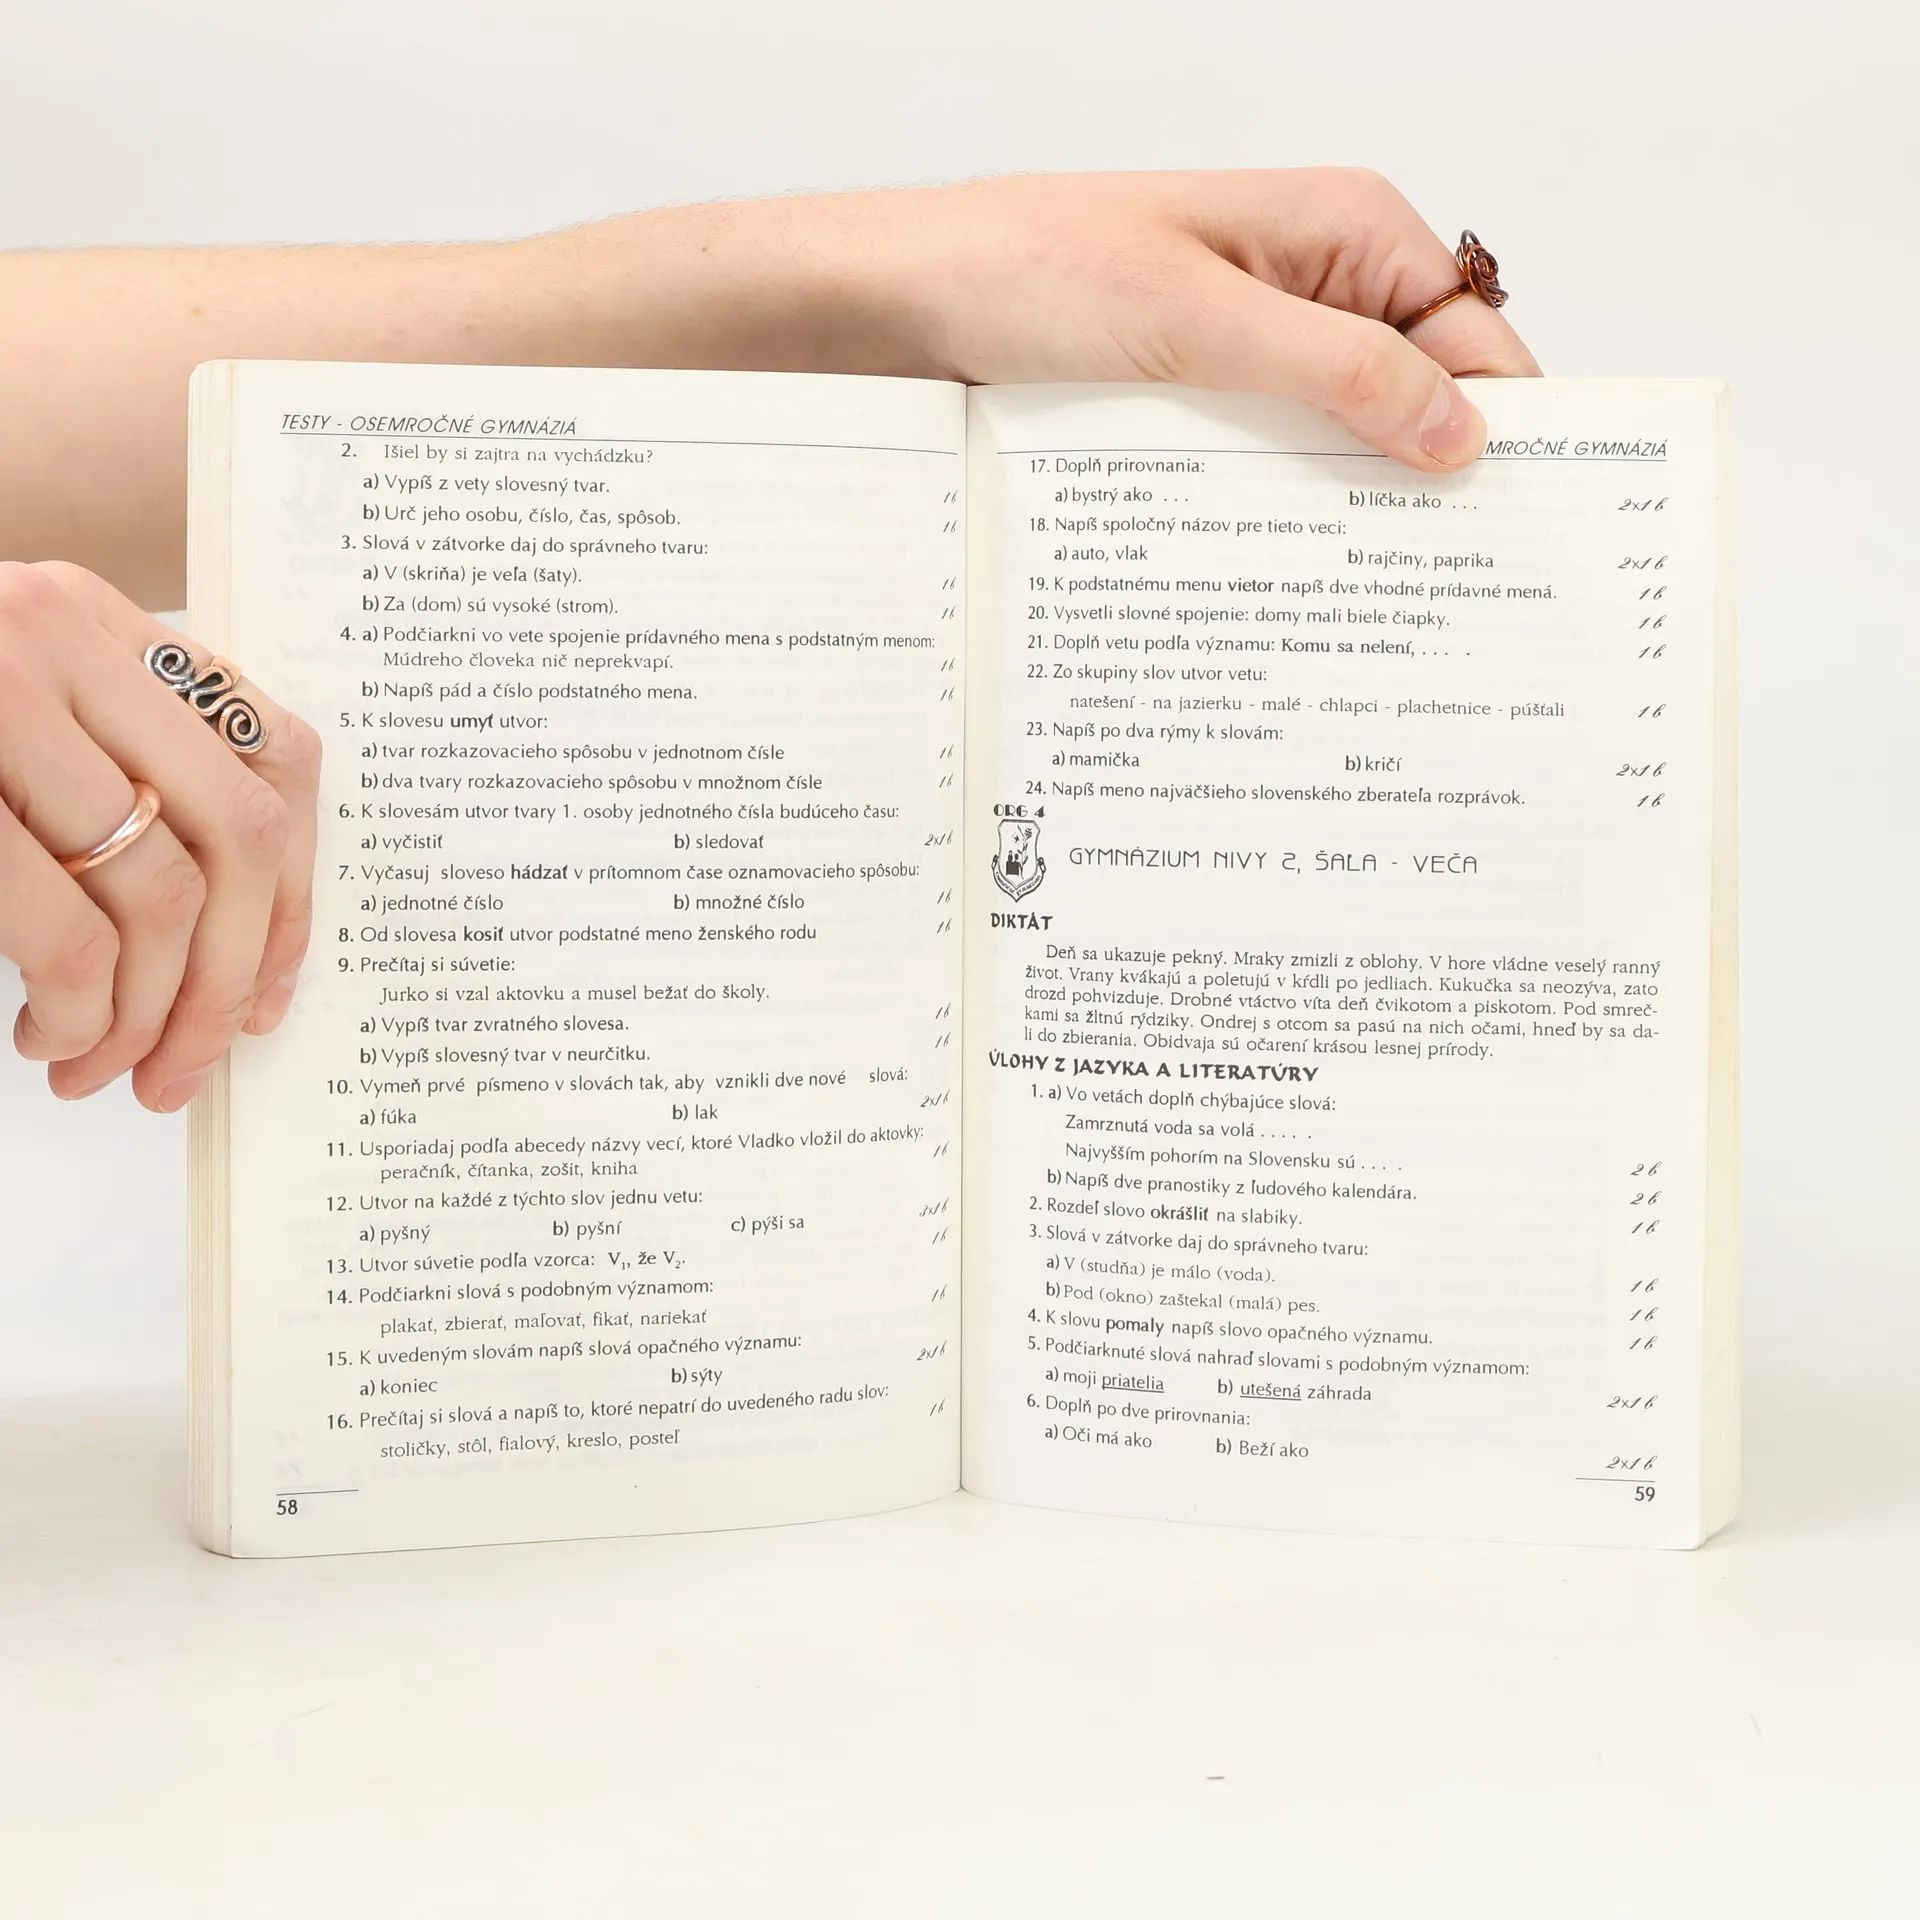 TESTY - OSEMROČNÉ GYMNÁZIÁ
2. Išiel by si zajtra na vychádzku?
a) Vypíš z vety slovesný tvar. 1b
b) Urč jeho osobu, číslo, čas, spôsob. 1b
3. Slová v zátvorke daj do správneho tvaru:
a) V (skriňa) je veľa (šaty). 1b
b) Za (dom) sú vysoké (strom). 1b
4. a) Podčiarkni vo vete spojenie prídavného mena s podstatným menom:
Múdreho človeka nič neprekvapí. 1b
b) Napíš pád a číslo podstatného mena. 1b
5. K slovesu umyť utvor:
a) tvar rozkazovacieho spôsobu v jednotnom čísle 1b
b) dva tvary rozkazovacieho spôsobu v množnom čísle 1b
6. K slovesám utvor tvary 1. osoby jednotného čísla budúceho času:
a) vyčistiť b) sledovať 2x1b
7. Vyčasuj sloveso hádzať v prítomnom čase oznamovacieho spôsobu:
a) jednotné číslo b) množné číslo 1b
8. Od slovesa kosiť utvor podstatné meno ženského rodu 1b
9. Prečítaj si súvetie:
Jurko si vzal aktovku a musel bežať do školy.
a) Vypíš tvar zvratného slovesa. 1b
b) Vypíš slovesný tvar v neurčitku. 1b
10. Vymeň prvé písmeno v slovách tak, aby vznikli dve nové slová:
a) fúka b) lak 2x1b
11. Usporiadaj podľa abecedy názvy vecí, ktoré Vladko vložil do aktovky:
peračník, čítanka, zošit, kniha 1b
12. Utvor na každé z týchto slov jednu vetu:
a) pyšný b) pyšní c) pýši sa 3x1b
13. Utvor súvetie podľa vzorca: V1, že V2. 1b
14. Podčiarkni slová s podobným významom:
plakať, zbierať, maľovať, fikať, nariekať 1b
15. K uvedeným slovám napíš slová opačného významu:
a) koniec b) sýty 2x1b
16. Prečítaj si slová a napíš to, ktoré nepatrí do uvedeného radu slov:
stoličky, stôl, fialový, kreslo, posteľ 1b
58
MROČNÉ GYMNÁZIÁ
17. Doplň prirovnania:
a) bystrý ako . . . b) líčka ako . . . 2x1b
18. Napíš spoločný názov pre tieto veci:
a) auto, vlak b) rajčiny, paprika 2x1b
19. K podstatnému menu vietor napíš dve vhodné prídavné mená. 1b
20. Vysvetli slovné spojenie: domy mali biele čiapky. 1b
21. Doplň vetu podľa významu: Komu sa nelení, . . . . 1b
22. Zo skupiny slov utvor vetu:
natešení - na jazierku - malé - chlapci - plachetnice - púšťali 1b
23. Napíš po dva rýmy k slovám:
a) mamička b) kričí 2x1b
24. Napíš meno najväčšieho slovenského zberateľa rozprávok. 1b
ORG 4
GYMNÁZIUM NIVY 2, ŠALA - VEČA
DIKTÁT
Deň sa ukazuje pekný. Mraky zmizli z oblohy. V hore vládne veselý ranný
život. Vrany kvákajú a poletujú v kŕdli po jedliach. Kukučka sa neozýva, zato
drozd pohvizduje. Drobné vtáctvo víta deň čvikotom a piskotom. Pod smreč-
kami sa žltnú rýdziky. Ondrej s otcom sa pasú na nich očami, hneď by sa da-
li do zbierania. Obidvaja sú očarení krásou lesnej prírody.
ÚLOHY Z JAZYKA A LITERATÚRY
1. a) Vo vetách doplň chýbajúce slová:
Zamrznutá voda sa volá . . . . .
Najvyšším pohorím na Slovensku sú . . . . 2b
b) Napíš dve pranostiky z ľudového kalendára. 2b
2. Rozdeľ slovo okrášliť na slabiky. 1b
3. Slová v zátvorke daj do správneho tvaru:
a) V (studňa) je málo (voda). 1b
b) Pod (okno) zaštekal (malá) pes. 1b
4. K slovu pomaly napíš slovo opačného významu. 1b
5. Podčiarknuté slová nahraď slovami s podobným významom:
a) moji priatelia b) utešená záhrada 2x1b
6. Doplň po dve prirovnania:
a) Oči má ako b) Beží ako 2x1b
59